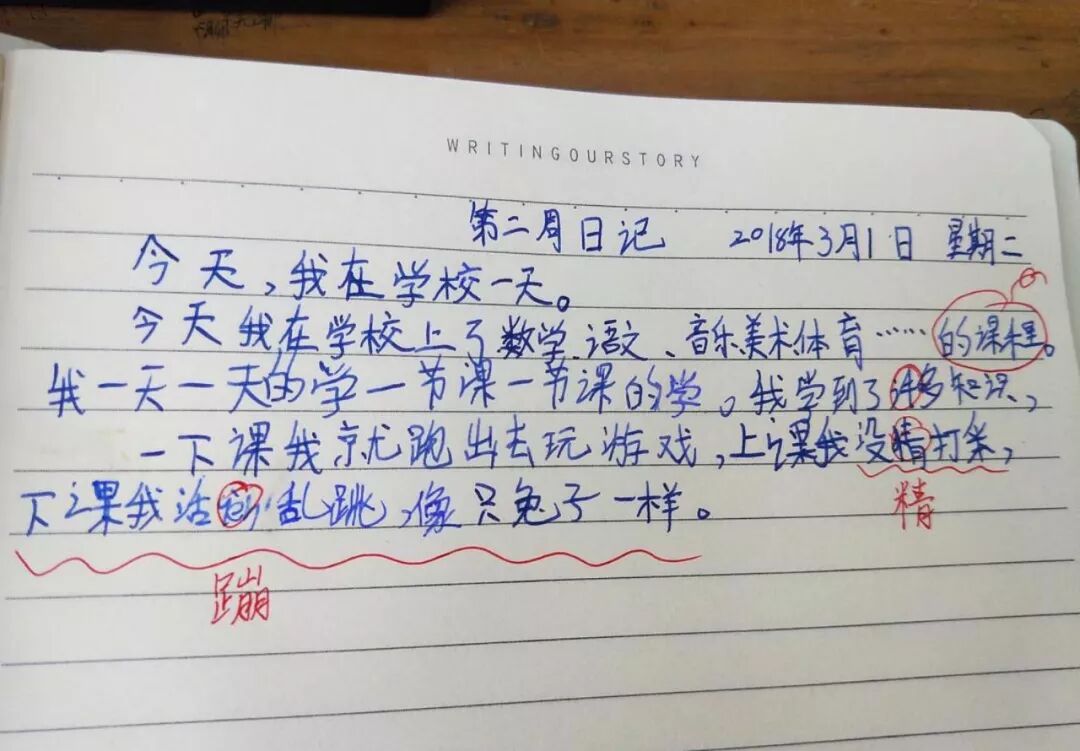 WRITINGOURSTORY
第二周日记 2018年3月1日 星期二
今天,我在学校一天。
今天我在学校上了数学、语文、音乐、美术、体育……的课程。
我一天一天的学一节课一节课的学。我学到了许多知识,
一下课我就跑出去玩游戏,上课我没精打采,
精
下课我活乱跳,像只兔子一样。
蹦